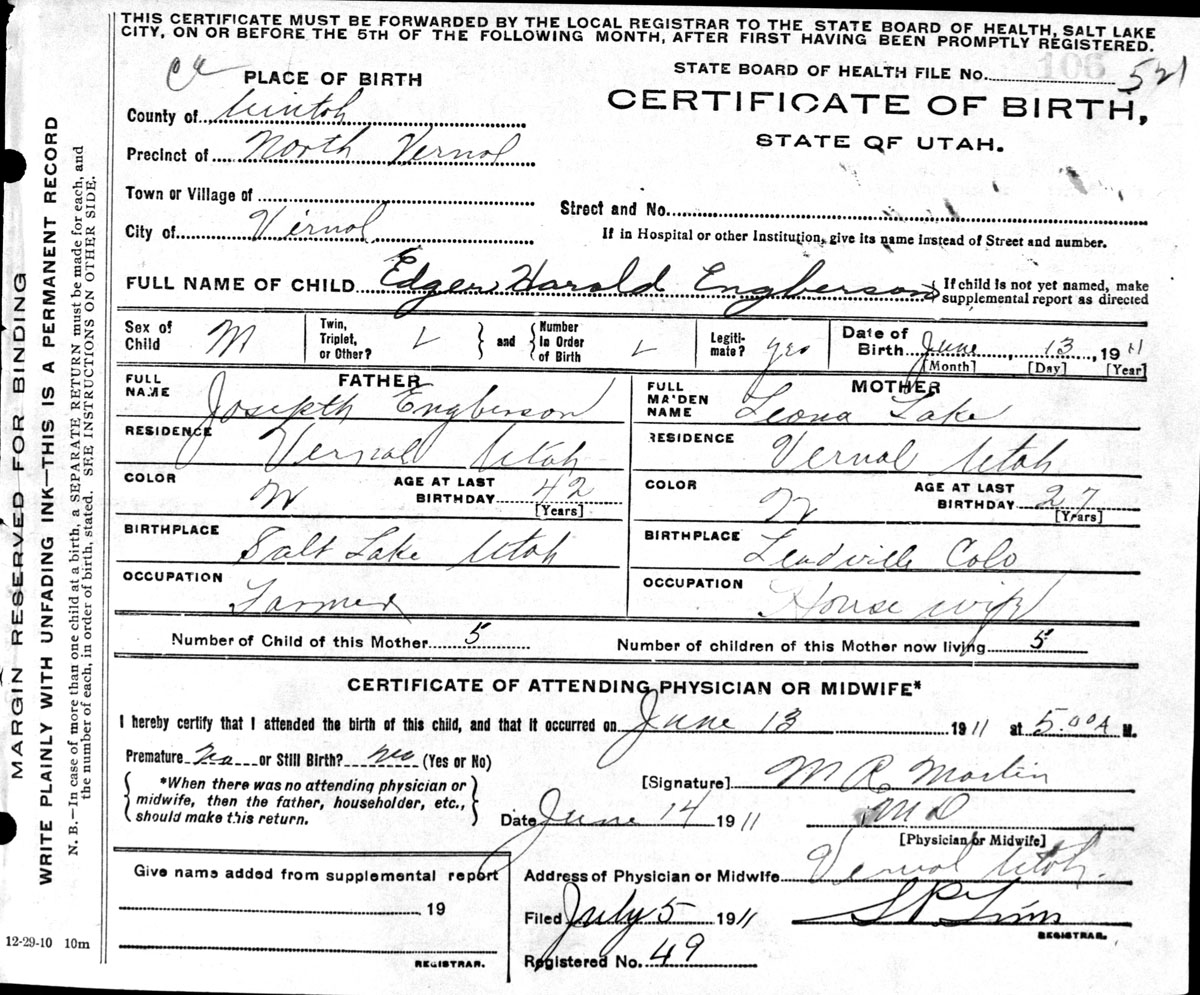 THIS CERTIFICATE MUST BE FORWARDED BY THE LOCAL REGISTRAR TO THE STATE BOARD OF HEALTH, SALT LAKE
CITY, ON OR BEFORE THE 5TH OF THE FOLLOWING MONTH, AFTER FIRST HAVING BEEN PROMPTLY REGISTERED.
PLACE OF BIRTH
STATE BOARD OF HEALTH FILE No. 106 521
County of Uintah
CERTIFICATE OF BIRTH,
Precinct of North Vernal
STATE OF UTAH.
Town or Village of
Street and No.
City of Vernal
If in Hospital or other Institution, give its name instead of Street and number.
FULL NAME OF CHILD Edger Harold Engberson
If child is not yet named, make
supplemental report as directed
Sex of Child M
Twin, Triplet, or Other?
and
Number In Order of Birth
Legiti-mate? yes
Date of Birth June 13, 1911
[Month] [Day] [Year]
FATHER
FULL NAME Joseph Engberson
RESIDENCE Vernal Utah
COLOR W
AGE AT LAST BIRTHDAY 42
[Years]
BIRTHPLACE Salt Lake Utah
OCCUPATION Farmer
MOTHER
FULL MAIDEN NAME Leona Lake
RESIDENCE Vernal Utah
COLOR W
AGE AT LAST BIRTHDAY 27
[Years]
BIRTHPLACE Leadville Colo
OCCUPATION House wife
Number of Child of this Mother 5
Number of children of this Mother now living 5
CERTIFICATE OF ATTENDING PHYSICIAN OR MIDWIFE*
I hereby certify that I attended the birth of this child, and that it occurred on June 13 1911 at 5.00 A M.
Premature No or Still Birth? no (Yes or No)
*When there was no attending physician or
midwife, then the father, householder, etc.,
should make this return.
[Signature] M R Martin
Date June 14 1911
M D
[Physician or Midwife]
Give name added from supplemental report
19
REGISTRAR.
Address of Physician or Midwife Vernal Utah.
Filed July 5 1911
REGISTRAR.
Registered No. 49
12-29-10 10m
MARGIN RESERVED FOR BINDING
WRITE PLAINLY WITH UNFADING INK—THIS IS A PERMANENT RECORD
N. B.—In case of more than one child at a birth, a SEPARATE RETURN must be made for each, and
the number of each, in order of birth, stated. SEE INSTRUCTIONS ON OTHER SIDE.